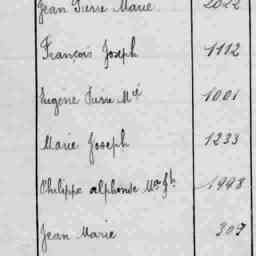 Jean Pierre Marie 2022
François Joseph 1112
Eugène Pierre Mie 1001
Marie Joseph 1233
Philippe alphonse Mie Jh 1998
Jean Marie 307